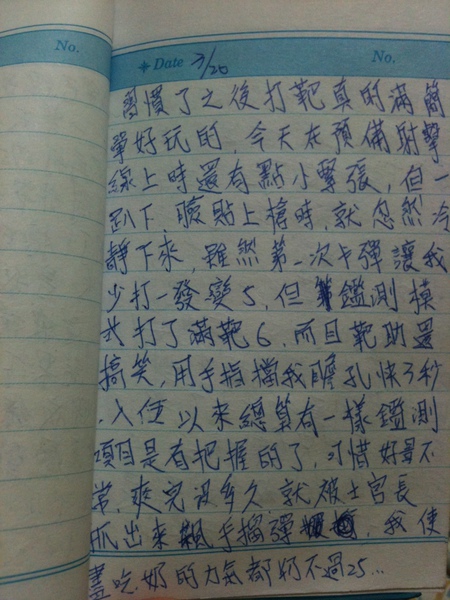 No.
✦ Date 7/20 No.
習慣了之後打靶真的滿簡
單好玩的,今天在預備射擊
線上時還有點小緊張,但一
趴下,臉貼上槍時,就忽然冷
靜下來,雖然第一次卡彈讓我
少打一發變5,但 鑑測模
式打了滿靶6,而且靶助還
搞笑,用手指擋我瞄孔快3秒
,入伍以來總算有一樣鑑測
項目是有把握的了,可惜好景不
常,爽完沒多久,就被士官長
抓出來 手榴彈 ,我使
盡吃奶的力氣都扔不過25...